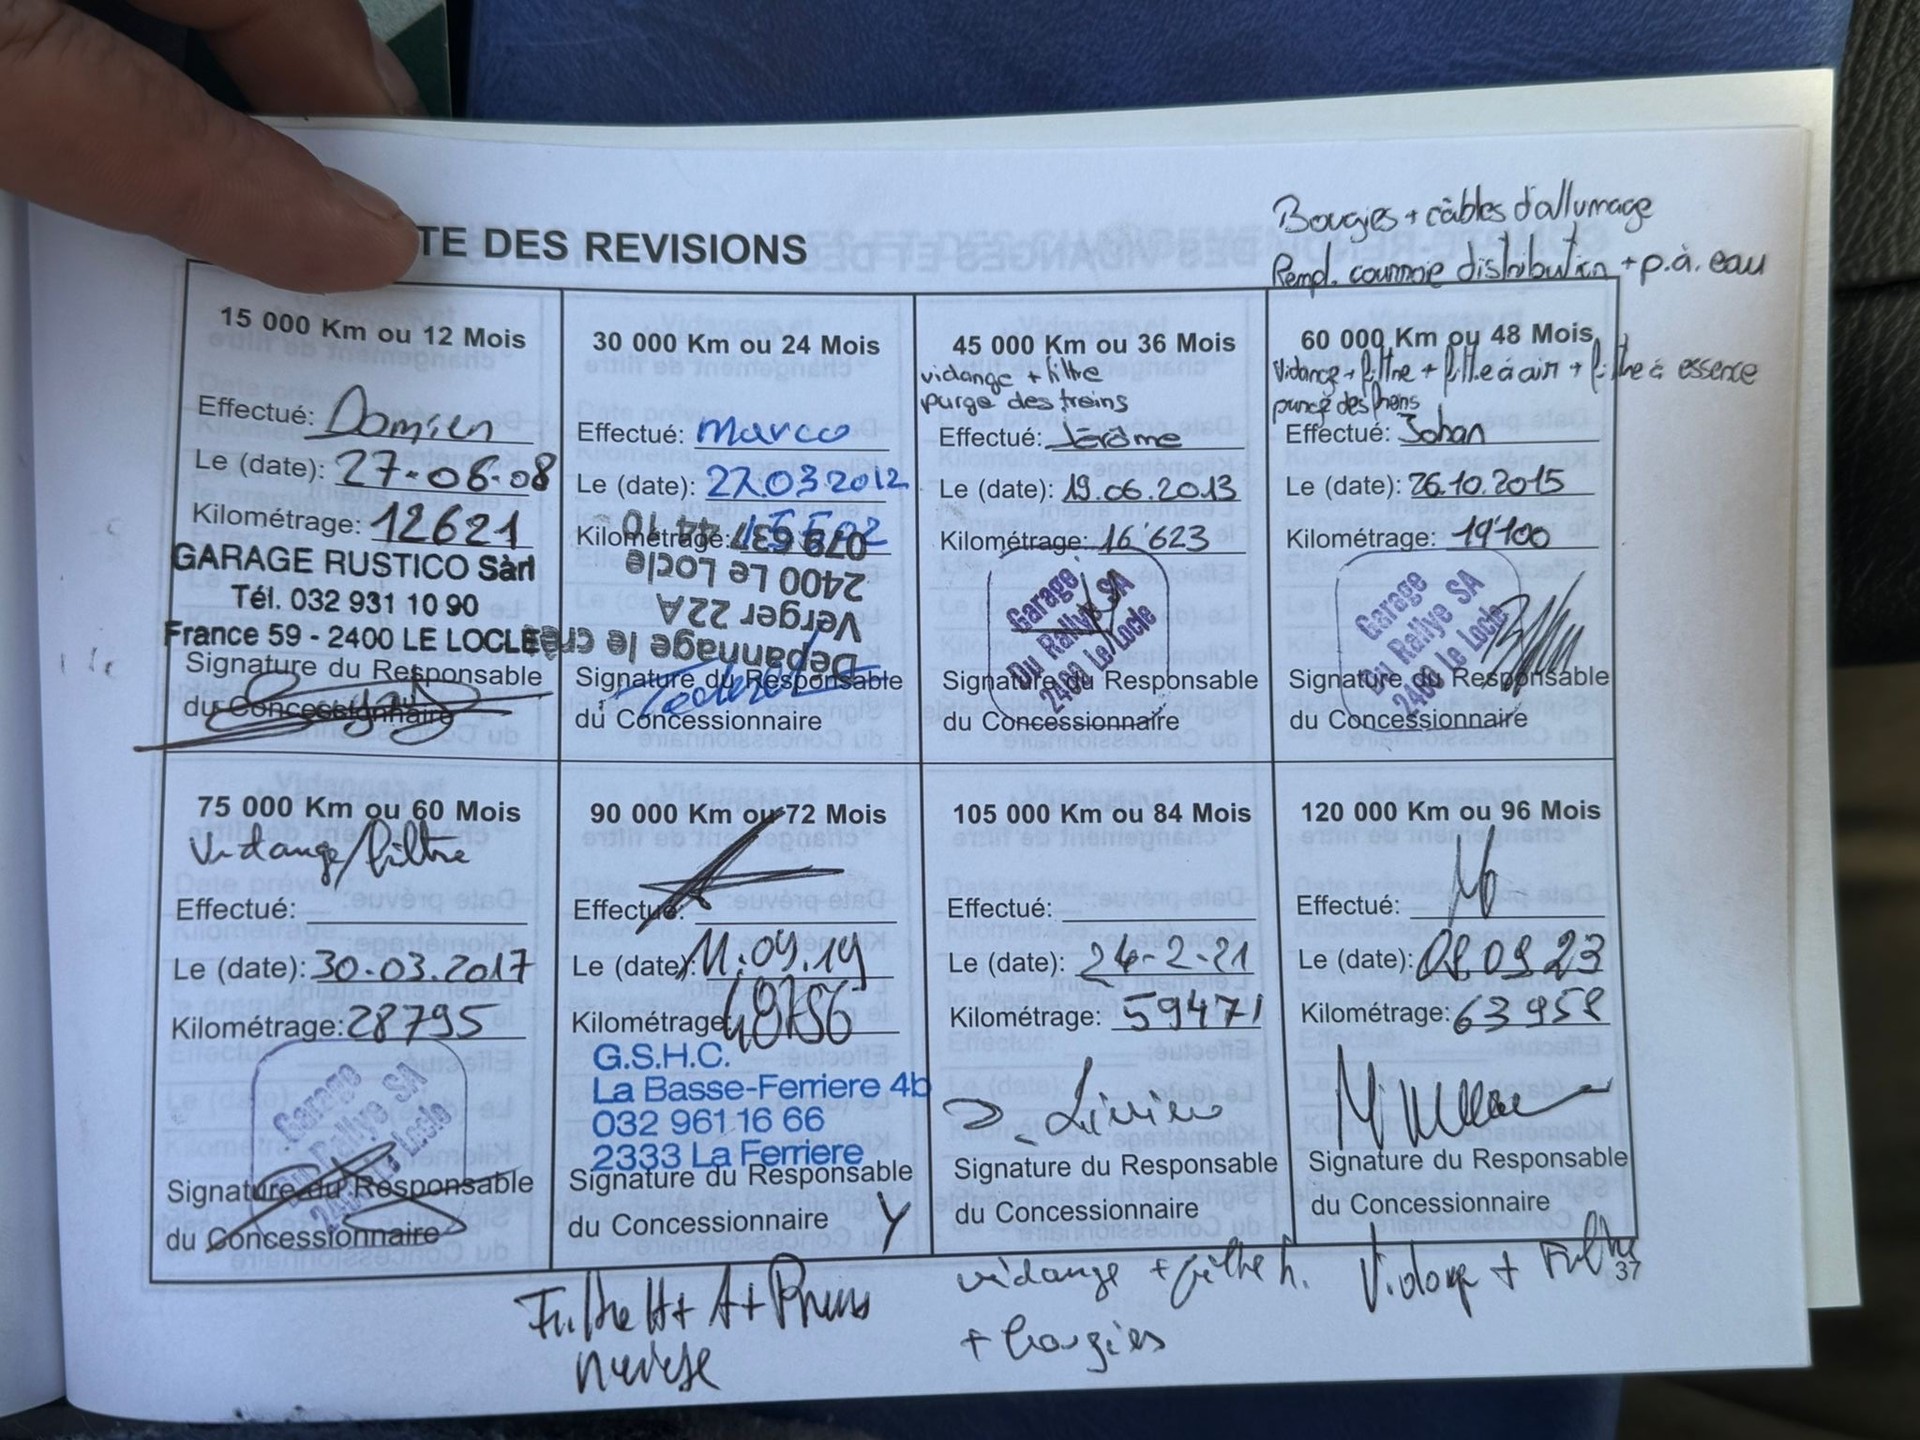 TE DES REVISIONS
Bougies + câbles d'allumage
Rempl. courroie distribution + p.à. eau
15 000 Km ou 12 Mois
Effectué: Damien
Le (date): 27-06-08
Kilométrage: 12621
GARAGE RUSTICO Sàrl
Tél. 032 931 10 90
France 59 - 2400 LE LOCLE
Signature du Responsable
du Concessionnaire
30 000 Km ou 24 Mois
Effectué: Marco
Le (date): 27.03.2012
Kilométrage:
079 637 44 10
2400 Le Locle
Verger 22A
Dépannage le
Signature du Responsable
du Concessionnaire
45 000 Km ou 36 Mois
vidange + filtre
purge des freins
Effectué: Jérôme
Le (date): 19.06.2013
Kilométrage: 16'623
Garage
Du Rallye SA
2400 Le Locle
Signature du Responsable
du Concessionnaire
60 000 Km ou 48 Mois
Vidange + filtre + filtre à air + filtre à essence
purge des freins
Effectué: Johan
Le (date): 26.10.2015
Kilométrage: 19'100
Garage
Du Rallye SA
2400 Le Locle
Signature du Responsable
du Concessionnaire
75 000 Km ou 60 Mois
Vidange/filtre
Effectué:
Le (date): 30.03.2017
Kilométrage: 28795
Garage
Du Rallye SA
2400 Le Locle
Signature du Responsable
du Concessionnaire
90 000 Km ou 72 Mois
Effectué:
Le (date): 11.09.19
Kilométrage:
G.S.H.C.
La Basse-Ferriere 4b
032 961 16 66
2333 La Ferriere
Signature du Responsable
du Concessionnaire
105 000 Km ou 84 Mois
Effectué:
Le (date): 24-2-21
Kilométrage: 59471
Signature du Responsable
du Concessionnaire
120 000 Km ou 96 Mois
Effectué:
Le (date): 08.09.23
Kilométrage: 63958
Signature du Responsable
du Concessionnaire
Filtre H + A +
vidange + filtre h.
+ bougies
Vidange + Filtre
37